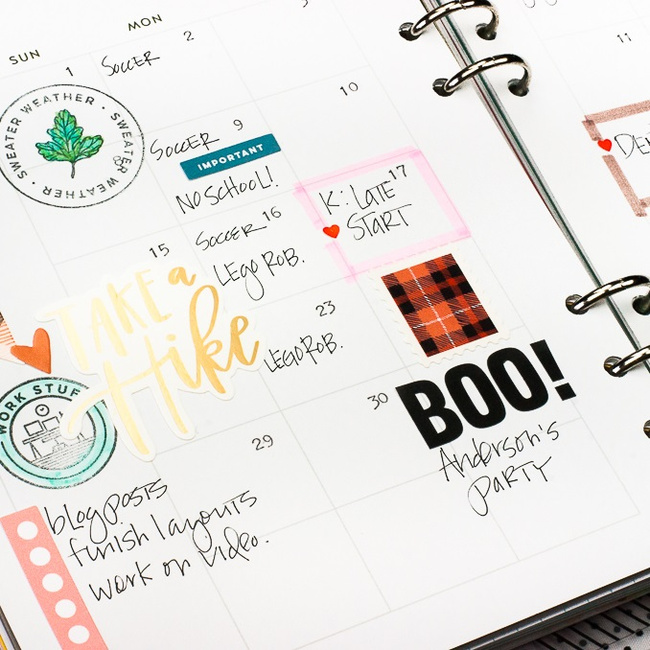 SUN
MON
1
2
3
SOCCER
SWEATER WEATHER · SWEATER WEATHER ·
9
10
11
SOCCER
IMPORTANT
NO SCHOOL!
15
16
17
SOCCER
LEGO ROB.
K: LATE
START
TAKE a
Hike
23
LEGO ROB.
WORK STUFF
BOO!
Anderson's
PARTY
29
30
blog posts
finish layouts
work on video.